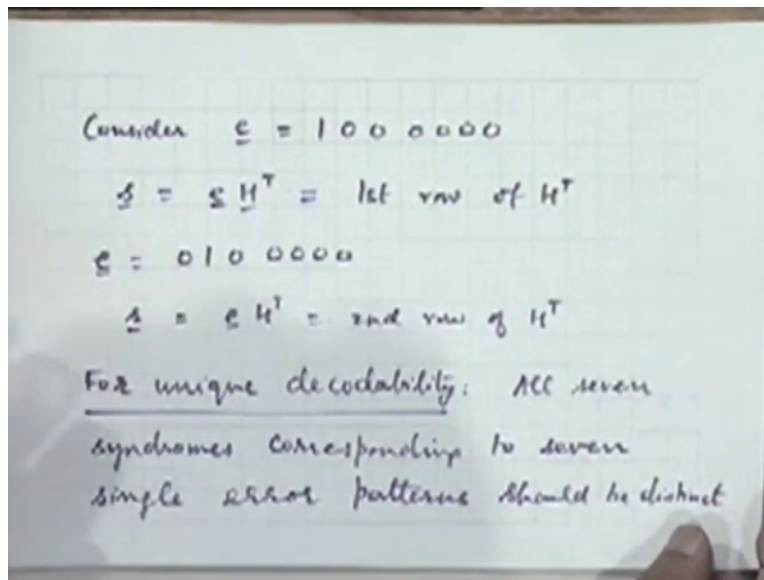 Consider e = 1 0 0 0 0 0 0
s = e H^T = 1st row of H^T
e = 0 1 0 0 0 0 0
s = e H^T = 2nd row of H^T
For unique decodability: All seven
syndromes corresponding to seven
single error patterns should be distinct